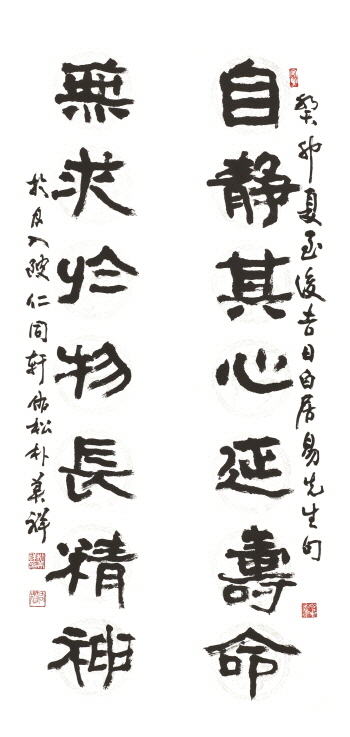 癸卯夏至後吉日白居易先生句
自靜其心延壽命
無求於物長精神
於月入陜仁同軒佑松朴英祥